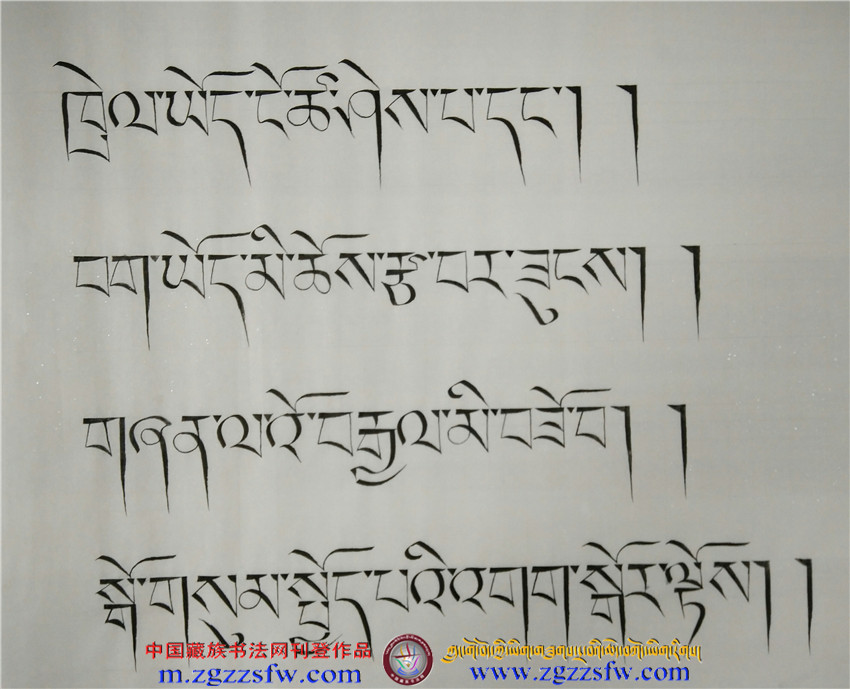 ཁྲེལ་ཡོད་ངོ་ཚ་ཤེས་པ་དང་། །
བག་ཡོད་མི་ཆོས་རྩ་བར་ཟུངས། །
གཞན་ལ་འོ་བརྒྱལ་མི་བཟོ་བ། །
སྒོ་གསུམ་སྤྱོད་པའི་འགག་སྒོར་ལྟོས། །
中国藏族书法网刊登作品
m.zgzzsfw.com
www.zgzzsfw.com